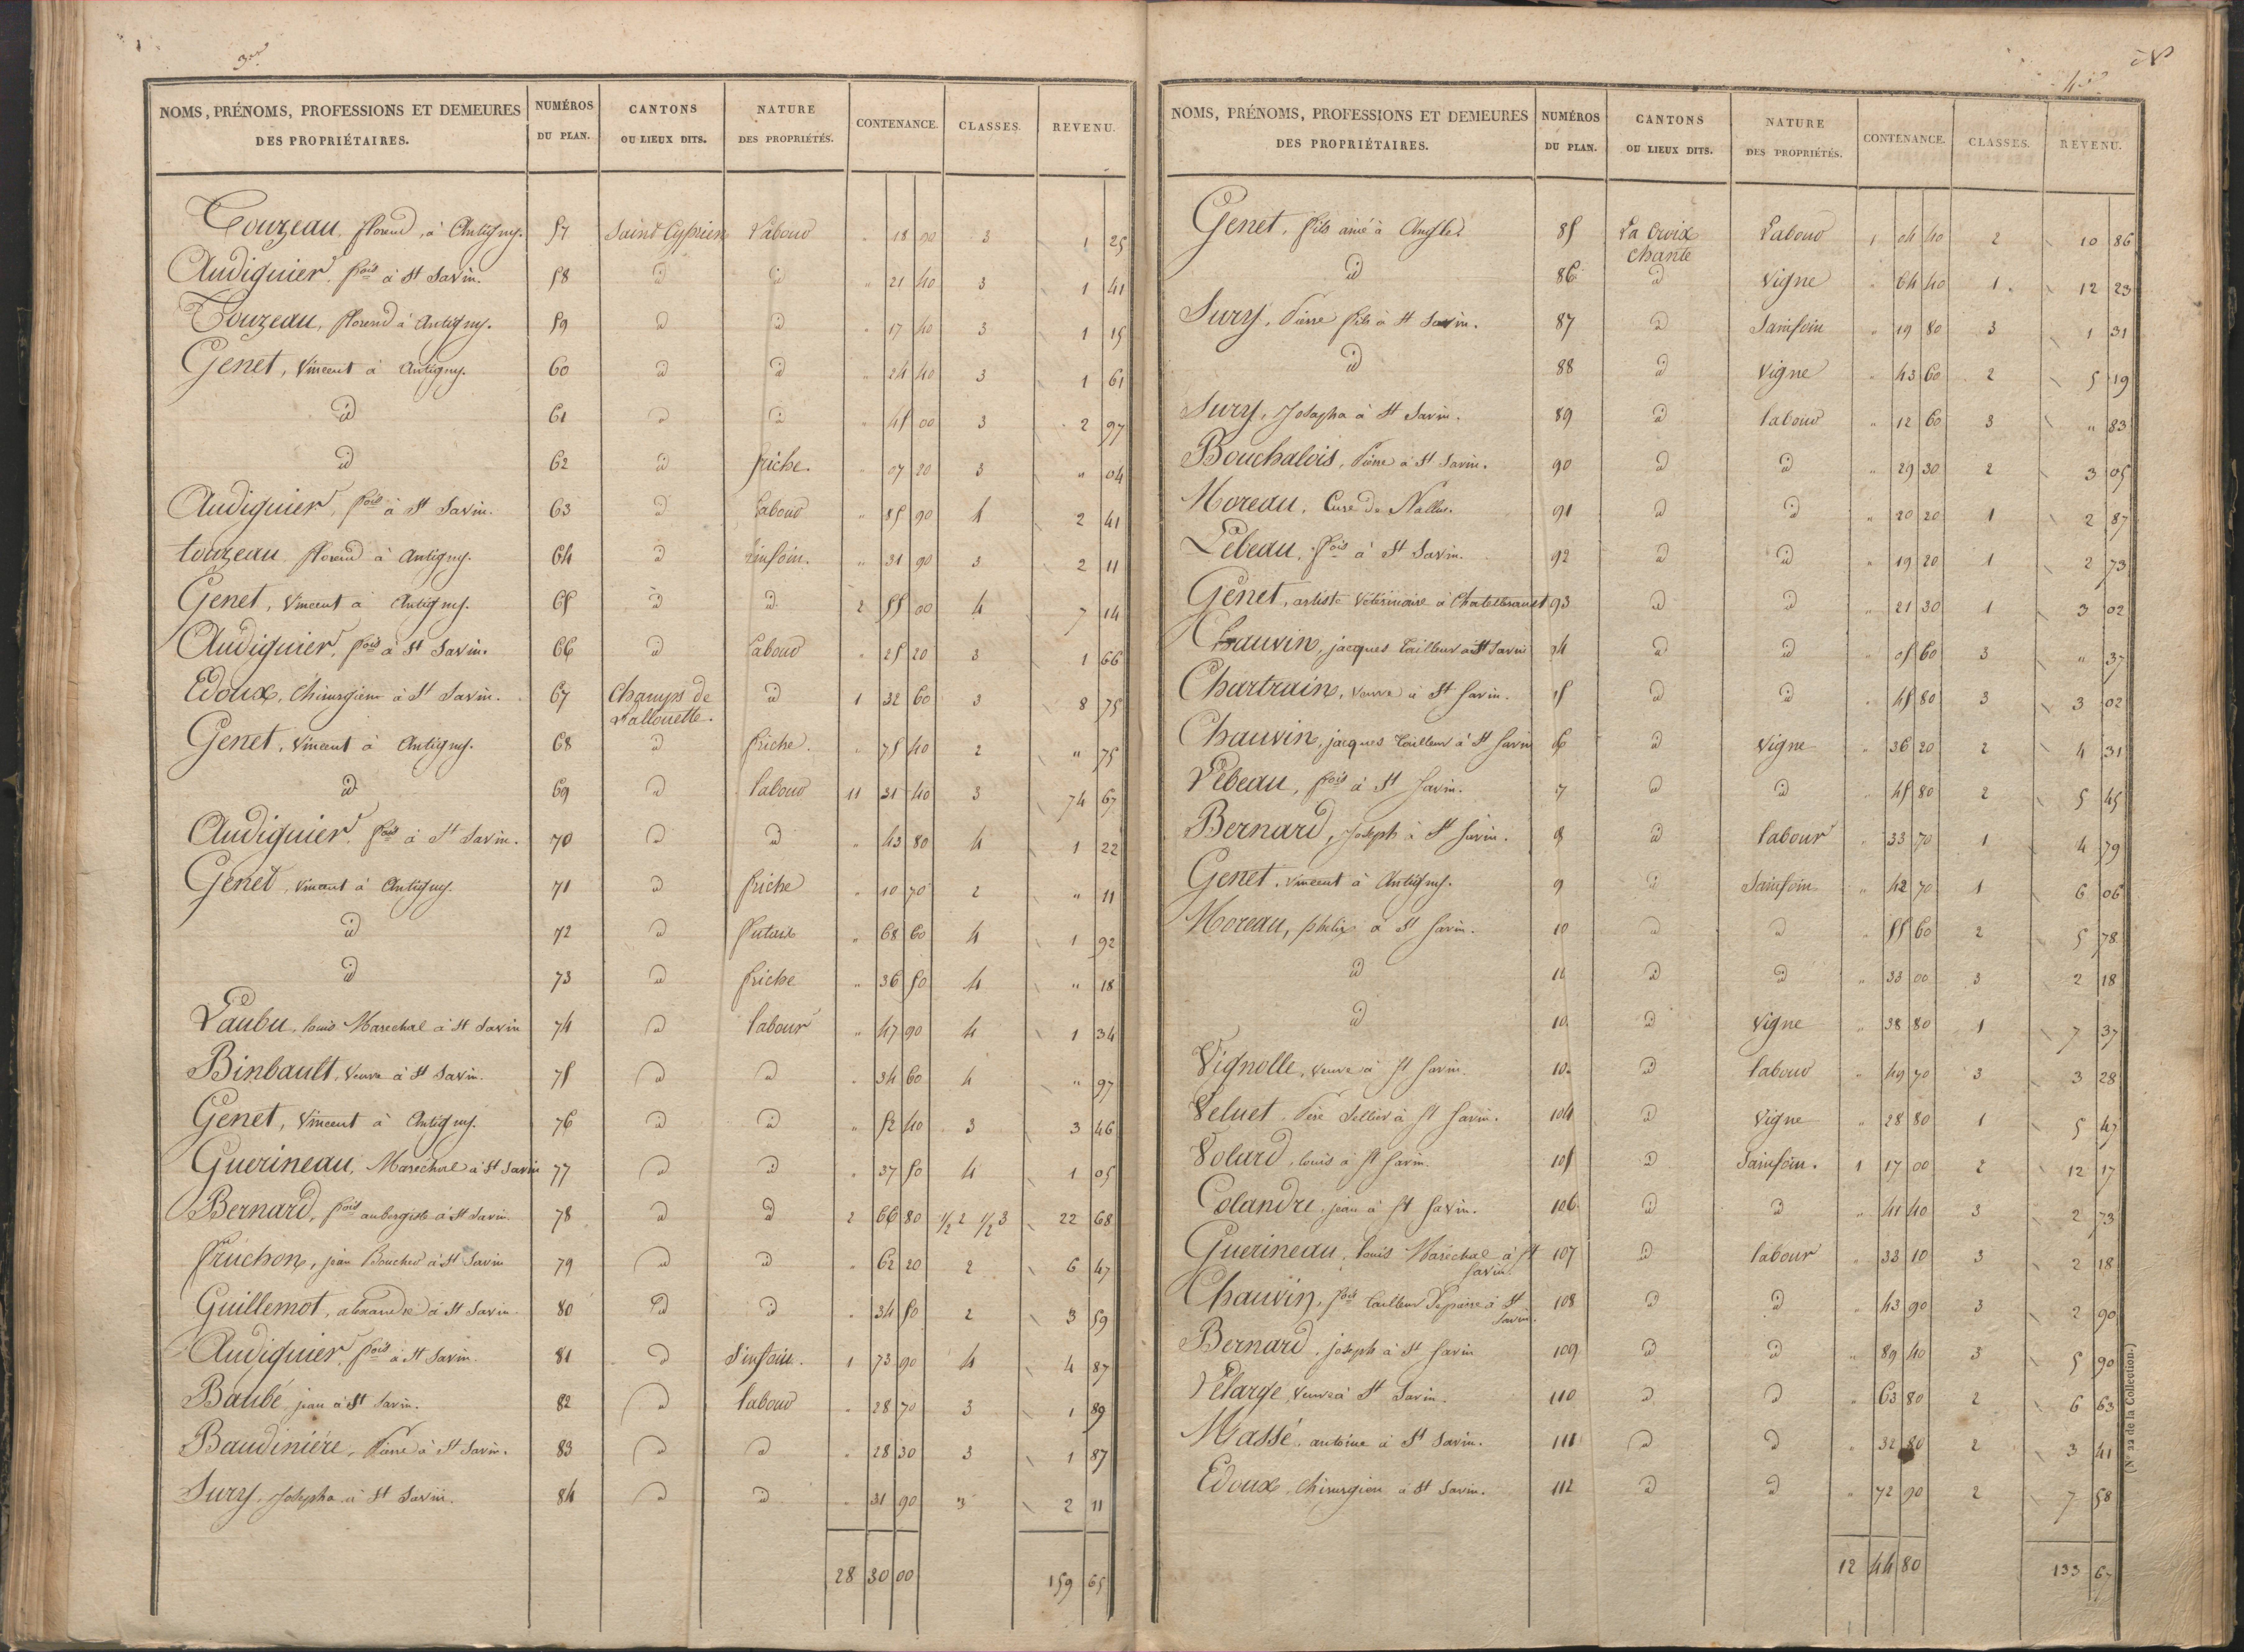 3
NOMS, PRÉNOMS, PROFESSIONS ET DEMEURES DES PROPRIÉTAIRES. NUMÉROS DU PLAN. CANTONS OU LIEUX DITS. NATURE DES PROPRIÉTÉS. CONTENANCE. CLASSES. REVENU.
Touzeau, florend, à Antigny. 57 Saint Cyprien Labour " 18 90 3 1 25
Audiguier, fois à St Savin. 58 id id " 21 40 3 1 41
Touzeau, florend à Antigny. 59 id id " 17 40 3 1 15
Genet, Vincent à Antigny. 60 id id " 24 40 3 1 61
id 61 id id " 45 00 3 2 97
id 62 id friche. " 07 20 3 " 04
Audiguier, fois à St Savin. 63 id Labour " 85 90 4 2 41
touzeau florend à Antigny. 64 id sinfoin. " 31 90 3 2 11
Genet, Vincent à Antigny. 65 id id 2 55 00 4 7 14
Audiguier, fois à St Savin. 66 id Labour " 25 20 3 1 66
Edoux, Chirurgien à St Savin. 67 Champs de Lallouette. id 1 32 60 3 8 75
Genet, Vincent à Antigny. 68 id friche. " 75 40 2 " 75
id 69 id labour 11 31 40 3 74 67
Audiguier, fois à St Savin. 70 id id " 43 80 4 1 22
Genet, Vincent à Antigny. 71 id friche " 10 70 2 " 11
id 72 id futaie " 68 60 4 1 92
id 73 id friche " 36 50 4 " 18
Laubu, louis Marechal à St Savin 74 id labour " 47 90 4 1 34
Binbault, Veuve à St Savin. 75 id id " 34 60 4 " 97
Genet, Vincent à Antigny. 76 id id " 52 40 3 3 46
Guerineau, Maréchal à St Savin 77 id id " 37 50 4 1 05
Bernard, fois aubergiste à St Savin. 78 id id 2 66 80 1/2 2 1/2 3 22 68
fruchon, jean Boucher à St Savin 79 id id " 62 20 2 6 47
Guillemot, alexandre à St Savin. 80 id id " 34 50 2 3 59
Audiguier, fois à St Savin. 81 id Sinfoin. 1 73 90 4 4 87
Baubé, jean à St Savin. 82 id labour " 28 70 3 1 89
Baudiniére, Pierre à St Savin. 83 id id " 28 30 3 1 87
Sury, Josepha à St Savin. 84 id id " 31 90 3 2 11
28 30 00 159 65
4
NOMS, PRÉNOMS, PROFESSIONS ET DEMEURES DES PROPRIÉTAIRES. NUMÉROS DU PLAN. CANTONS OU LIEUX DITS. NATURE DES PROPRIÉTÉS. CONTENANCE. CLASSES. REVENU.
Genet, fils ainé à Angles 85 La Croix chante Labour 1 04 40 2 10 86
id 86 id Vigne " 64 40 1 12 23
Sury, Pierre fils à St Savin. 87 id Sainfoin " 19 80 3 1 31
id 88 id Vigne " 43 60 2 5 19
Sury, Josepha à St Savin. 89 id labour " 12 60 3 " 83
Bouchalois, Pierre à St Savin. 90 id id " 29 30 2 3 05
Moreau, Curé de Nallier. 91 id id " 20 20 1 2 87
Lebeau, fois à St Savin. 92 id id " 19 20 1 2 73
Genet, artiste Vétérinaire à Chatellerault 93 id id " 21 30 1 3 02
Chauvin, jacques tailleur à St Savin 94 id id " 05 60 3 " 37
Chartrain, veuve à St Savin. 5 id id " 45 80 3 3 02
Chauvin, jacques tailleur à St Savin 6 id Vigne " 36 20 2 4 31
Lebeau, fois à St Savin. 7 id id " 45 80 2 5 45
Bernard, Joseph à St Savin. 8 id labour " 33 70 1 4 79
Genet, Vincent à Antigny. 9 id Sainfoin " 42 70 1 6 06
Moreau, phelix à St Savin. 10 id id " 55 60 2 5 78
id 10 id id " 33 00 3 2 18
id 10 id Vigne " 38 80 1 7 37
Vignolle, veuve à St Savin. 10 id labour " 49 70 3 3 28
Veluet, Père Sellier à St Savin. 104 id Vigne " 28 80 1 5 47
Volard, louis à St Savin. 105 id Sainfoin. 1 17 00 2 12 17
Colandre, jean à St Savin. 106 id id " 41 40 3 2 73
Guerineau, louis Maréchal à St Savin. 107 id labour " 33 10 3 2 18
Chauvin, fois tailleur à St Savin. 108 id id " 43 90 3 2 90
Bernard, joseph à St Savin 109 id id " 89 40 3 5 90
Lélarge, Veuve à St Savin. 110 id id " 63 80 2 6 63
Massé, antoine à St Savin. 111 id id " 32 80 2 3 41
Edoux, Chirurgien à St Savin. 112 id id " 72 90 2 7 58
12 44 80 133 67
(N° 22 de la Collection.)